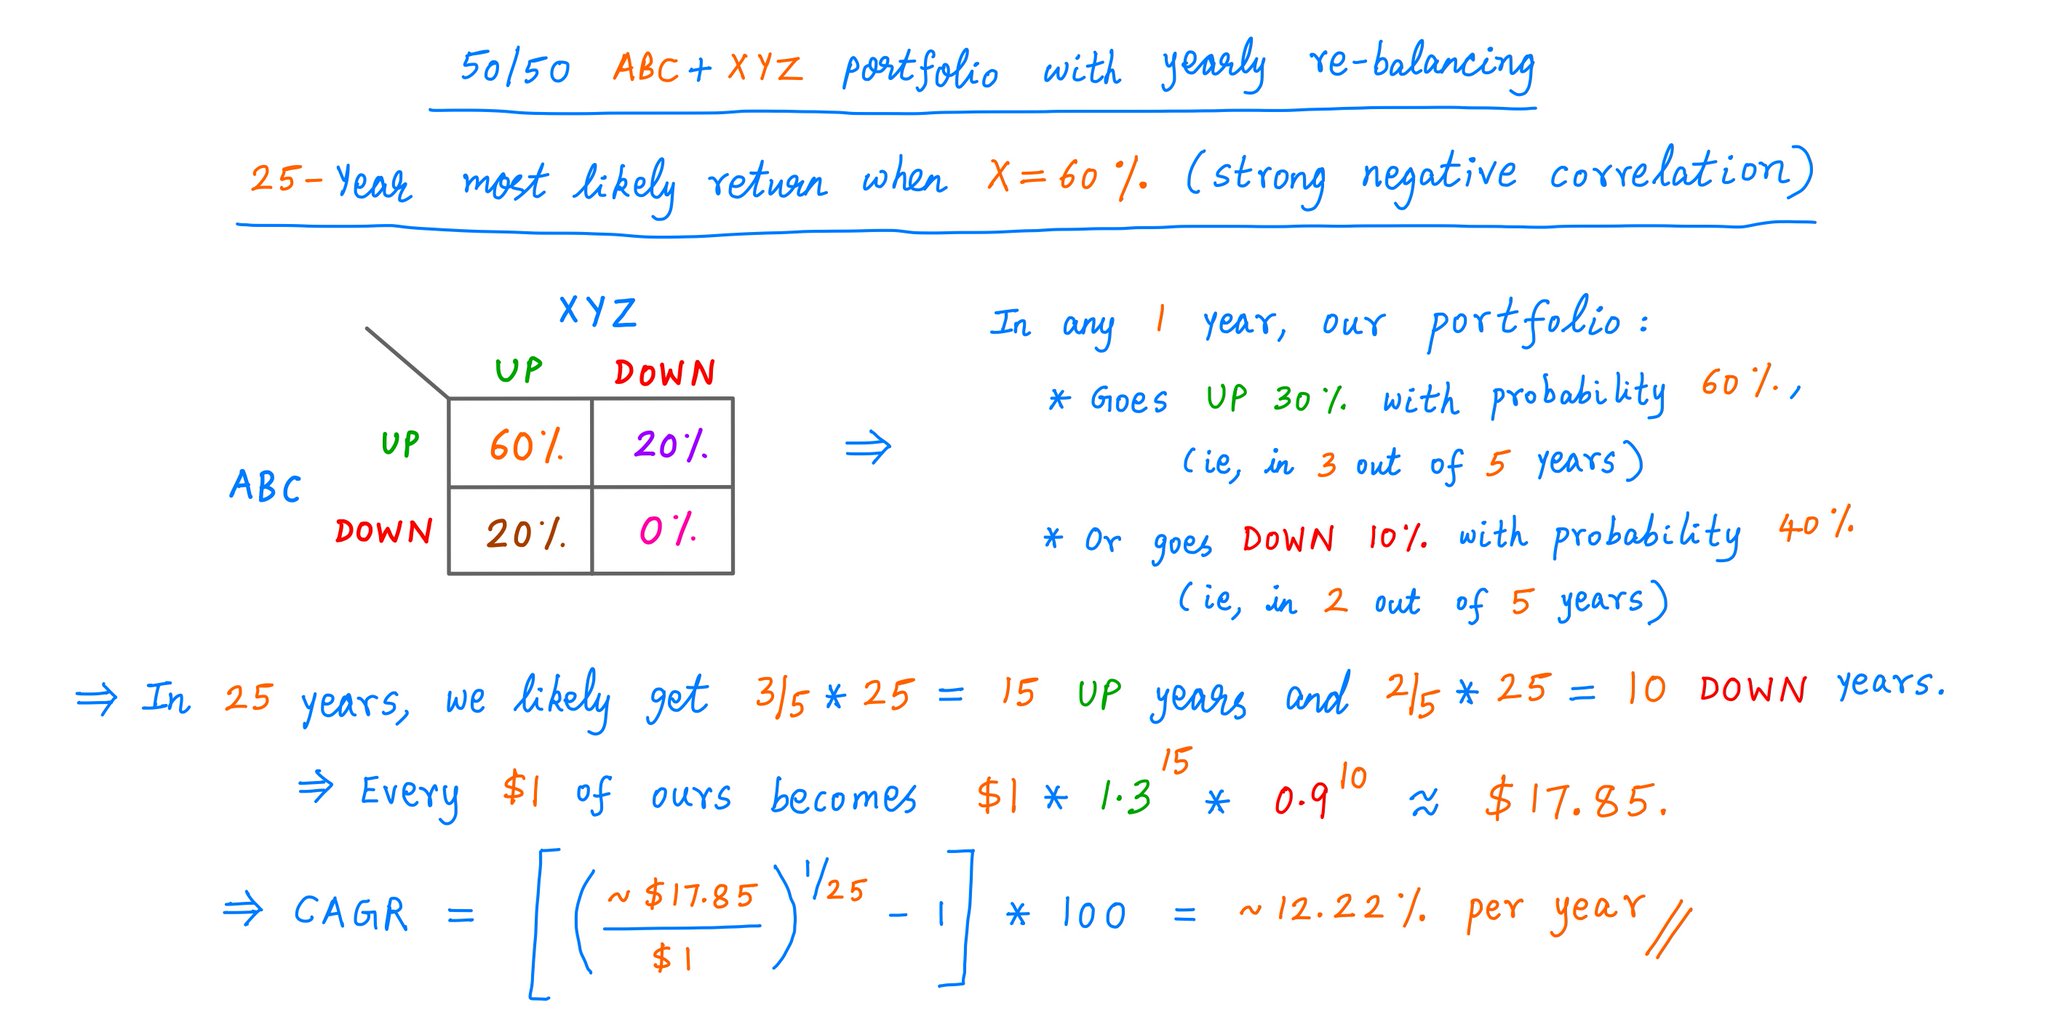 50/50 ABC + XYZ portfolio with yearly re-balancing
25-Year most likely return when X = 60% (strong negative correlation)
XYZ
UP DOWN
UP 60% 20%
ABC
DOWN 20% 0%
⇒
In any 1 year, our portfolio:
* Goes UP 30% with probability 60%,
(ie, in 3 out of 5 years)
* Or goes DOWN 10% with probability 40%
(ie, in 2 out of 5 years)
⇒ In 25 years, we likely get 3/5 * 25 = 15 UP years and 2/5 * 25 = 10 DOWN years.
⇒ Every $1 of ours becomes $1 * 1.3^15 * 0.9^10 ≈ $17.85.
⇒ CAGR = [(~$17.85/$1)^1/25 - 1] * 100 = ~12.22% per year //